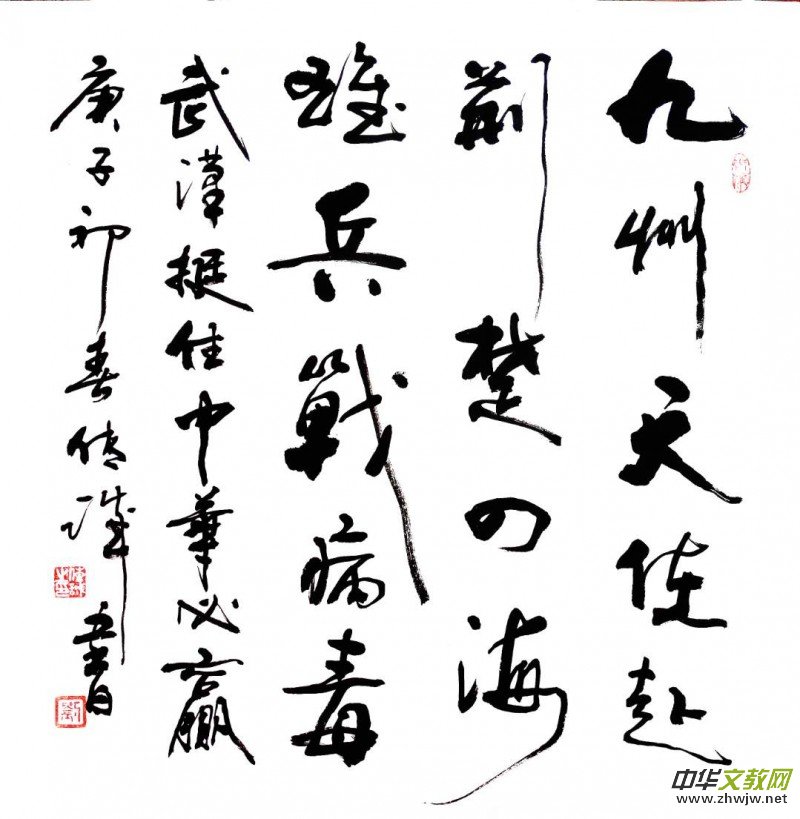 九州天使赴
荆楚四海
雄兵戰病毒
武漢挺住中華必贏
庚子初春
中华文教网
www.zhwjw.net